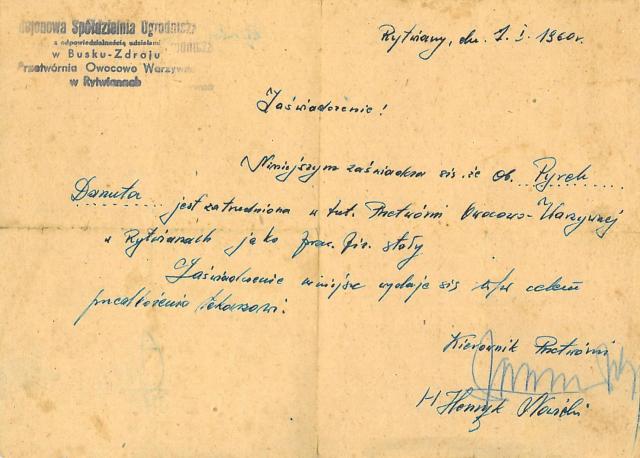 Rejonowa Spółdzielnia Ogrodnicza
z odpowiedzialnością udziałami
w Busku-Zdroju
Przetwórnia Owocowo Warzywna
w Rytwianach
Rytwiany, dn. 1. I. 1960r.
Zaświadczenie!
Niniejszym zaświadcza się że Ob. Pyrek
Danuta jest zatrudniona w tut. Przetwórni Owocowo-Warzywnej
w Rytwianach jako prac. fiz. stały
Zaświadczenie niniejsze wydaje się w celem
przedłożenia lekarzowi.
Kierownik Przetwórni
H Henryk